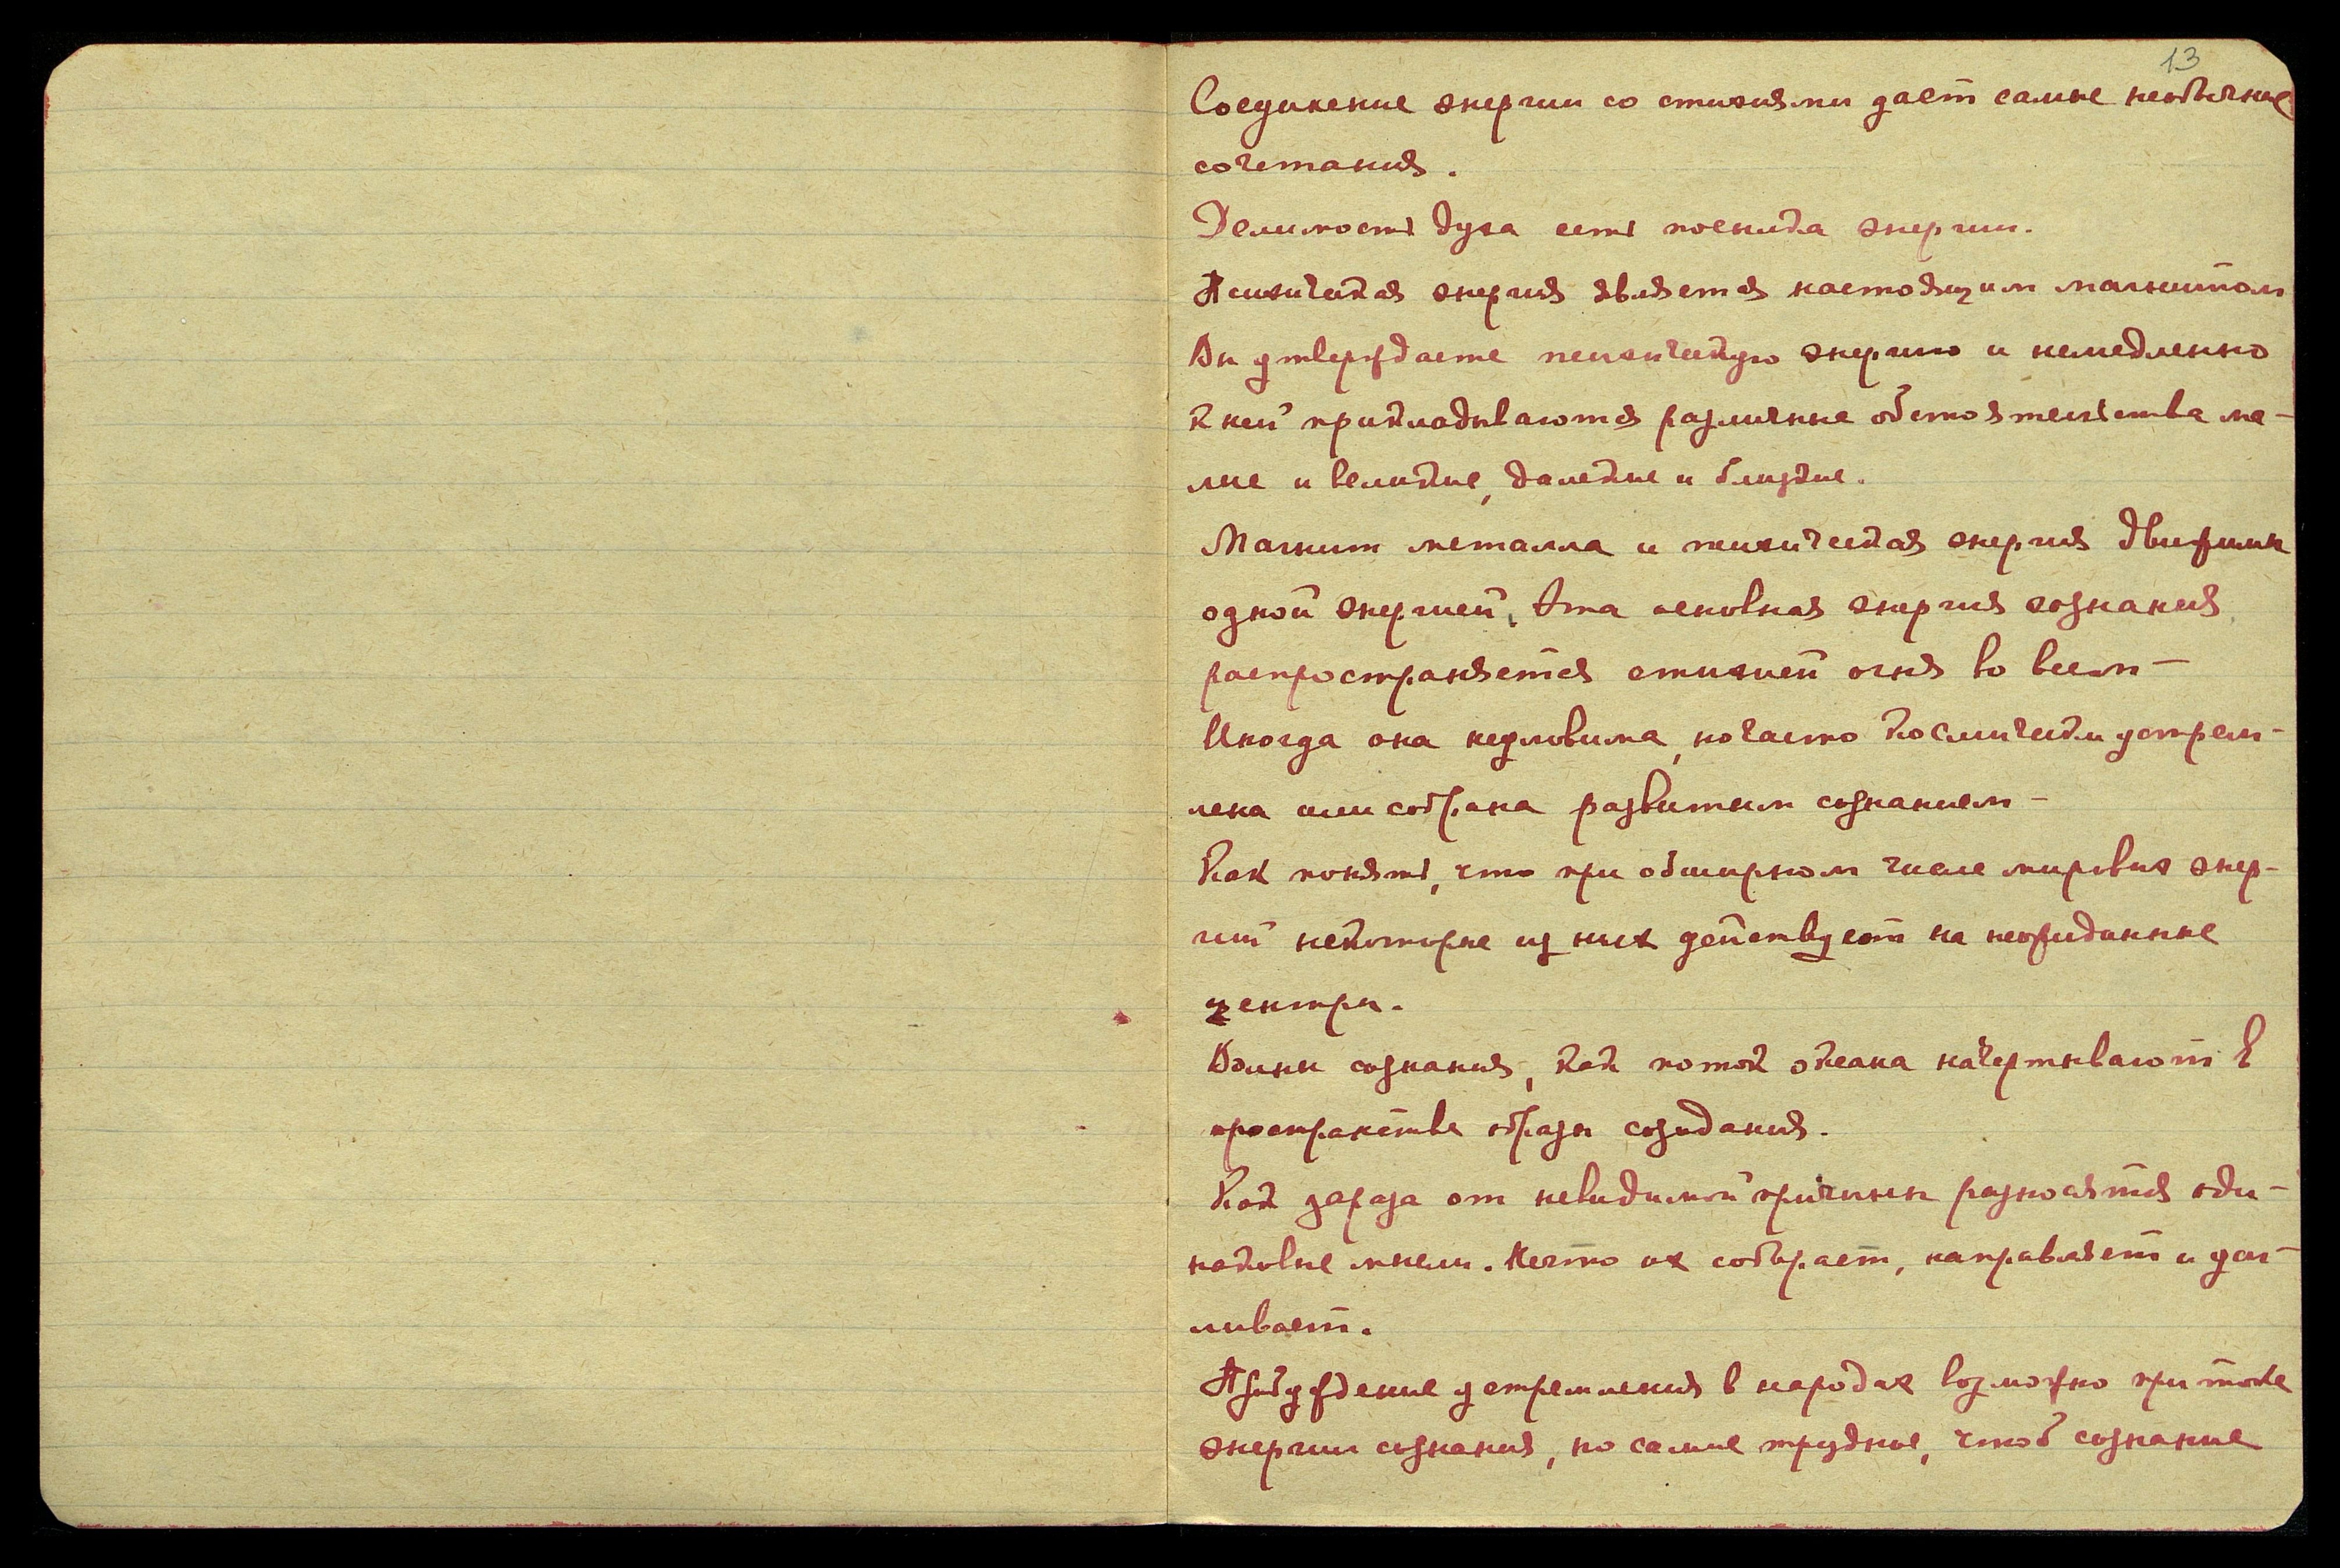 13
Соединение энергии со стихиями дает самые необычные
сочетания.
Делимость духа есть посылка энергии.
Психическая энергия является настоящим магнитом
Вы утверждаете психическую энергию и немедленно
к ней прикладываются различные обстоятельства ма-
лые и великие, далекие и близкие.
Магнит металла и психическая энергия движимы
одной энергией. Эта основная энергия сознания
распространяется стихией огня во всем –
Иногда она неуловима, но часто космически устрем-
лена или собрана развитым сознанием –
Как понять, что при обширном числе мировых энер-
гий некоторые из них действуют на неожиданные
центры.
Волны сознания, как поток океана начертывают в
пространстве образы созидания.
Как зараза от невидимой причины разносятся оди-
наковые мысли. Нечто их собирает, направляет и уси-
ливает.
Пробуждение устремления в народах возможно при токе
энергии сознания, но самые трудное, чтоб сознание